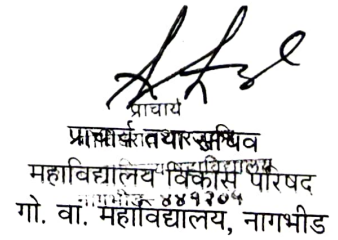 प्राचार्य
प्राचार्य तथा सचिव
महाविद्यालय विकास परिषद
नागभीड ४४१२०५
गो. वा. महाविद्यालय, नागभीड